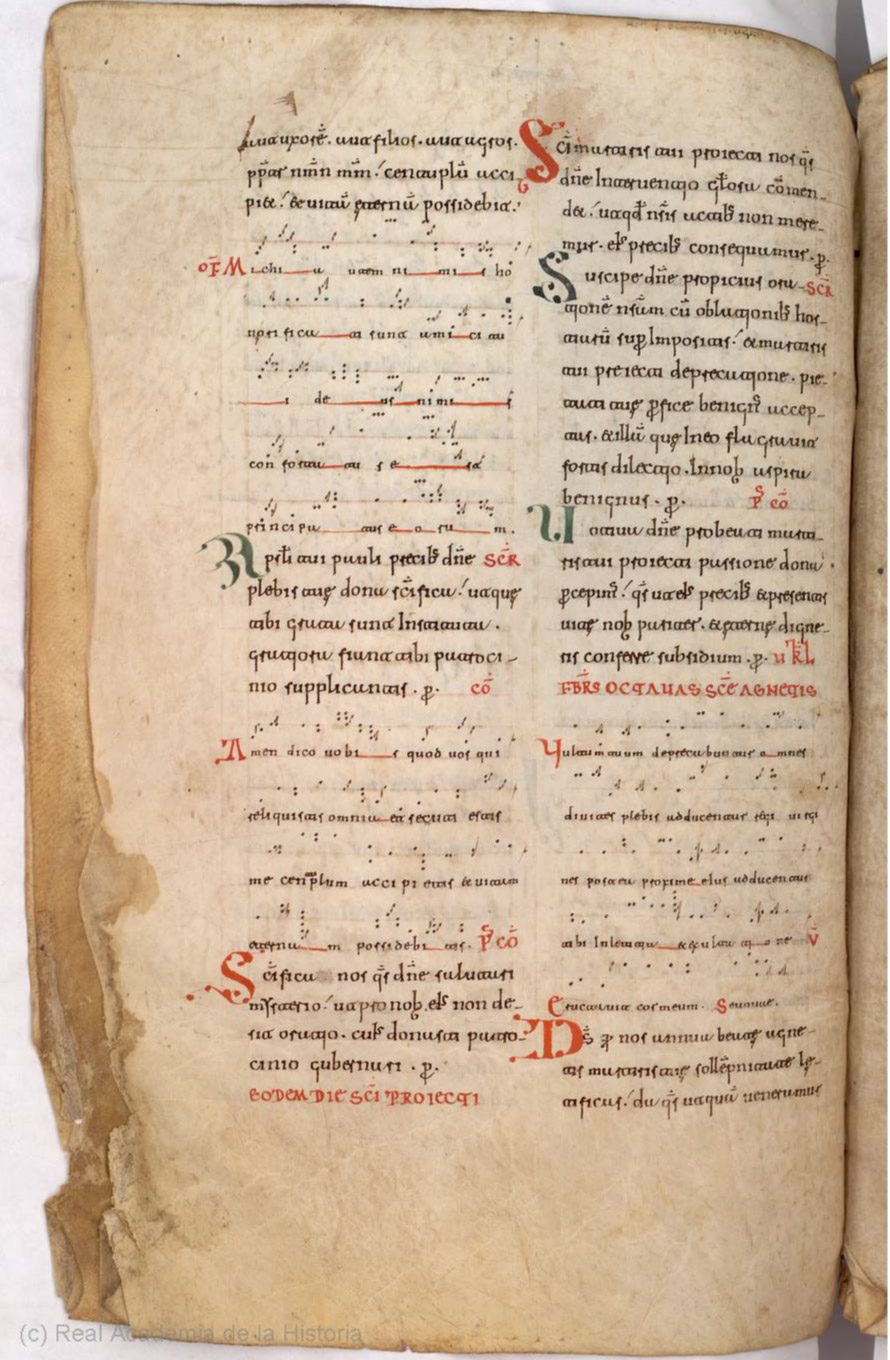 aut uxorē. aut filios. aut agros.
pp̄t nm̄n mm̄. centuplū acci
piet. & vitā ęternā possidebit.
OF̄ Michi au tem ni mi s ho
norifica ti sunt amici tu
i de us nimi s
con forta tu s e st
principa tus eo ru m.
Apłi tui pauli precib; dn̄e SCR̄
plebis tuę dona sc̄ifica. ut quę
tibi grata sunt Instituta.
gratiora fiant tibi patroci-
nio supplicantis. p̄. CŌ
Amen dico vobi s quod vos qui
reliquistis omnia et secuti estis
me centuplum acci pi etis & vitam
eternam possidebi tis. P̄S CŌ
Sc̄ifica nos qs̄ dn̄e salutari
misterio. ut pro nob̄ ei; non de-
sit oratio. cui; donasti patro-
cinio gubernari. p̄.
EODEM DIE SC̄I PROIECTI
Sc̄i martiris tui proiecti nos qs̄
dn̄e Interventio głosa cōmen-
det. ut qd̄ nr̄is actib; non mere-
mur. ei; precib; consequamur. p̄.
Suscipe dn̄e propicius ora- SCR̄
tionē nr̄am cū oblationib; hos-
tiarū sup̄ Impositis. & martiris
tui proiecti deprecatione. pie-
tati tuę p̄fice benign̄ accep-
tas. & illā quę In eo flagravit
fortis dilectio. In nob̄ aspira
benignus. p̄. P̄S CŌ
Votiva dn̄e pro beati marti-
ris tui proiecti passione dona
p̄cepim̄. qs̄ ut ei; precib; & presentis
vitę nob̄ pariter. & ęternę digne-
ris conferre subsidium. p̄. V KL̄
FB̄RS OCTAVAS SC̄E AGNETIS
Vultum tuum deprecabuntur omnes
divites plebis adducentur regi virgi
nes post ea proxime eius adducentur
tibi In letitia & exulta ti o ne V̄
Eructavit cor meum. Seuouae.
Ds̄ q̄ nos annua beatę agne-
tis martiris tuę sollēpnitate lę-
tificas. da qs̄ ut quā veneramur
(c) Real Academia de la Historia